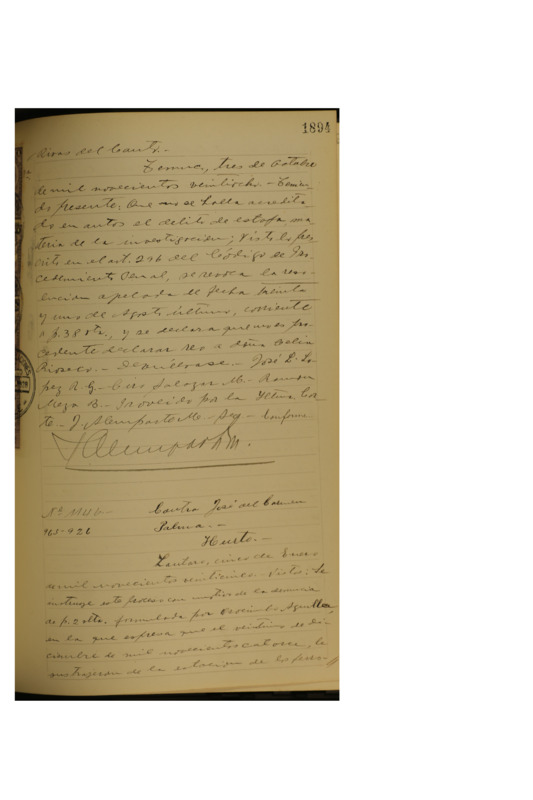 1894
Rivas del Canto.-
Temuco, tres de Octubre
de mil novecientos veintiocho.- Tenien-
do presente: Que no se halla acredita-
do en autos el delito de estafa ma-
teria de la investigación; Visto lo pres-
crito en el art. 296 del Código de Pro-
cedimiento Penal, se revoca la reso-
lución apelada de fecha treinta
y uno de Agosto último, corriente
a f. 38 vta., y se declara que no es pro-
cedente declarar reo a doña
Rioseco.- Devuélvase.- José D. Ló-
pez R. G.- Ciro Salazar M.- Ramón
Meza B.- Proveído por la Iltma. Cor-
te.- J. Alemparte M.- Srio.- Conforme
Alemparte M.
Nº 1146-
Contra José del Carmen
963-926
Palma.-
Hurto.-
Lautaro, cinco de Enero
mil novecientos veinticinco.- Vistos: Se
instruye este proceso con motivo de la denuncia
de f. 2 vta. formulada por
en la que expresa que el veintiuno de di-
ciembre de mil novecientos catorce, le
sustrajeron de la estación de los ferro-